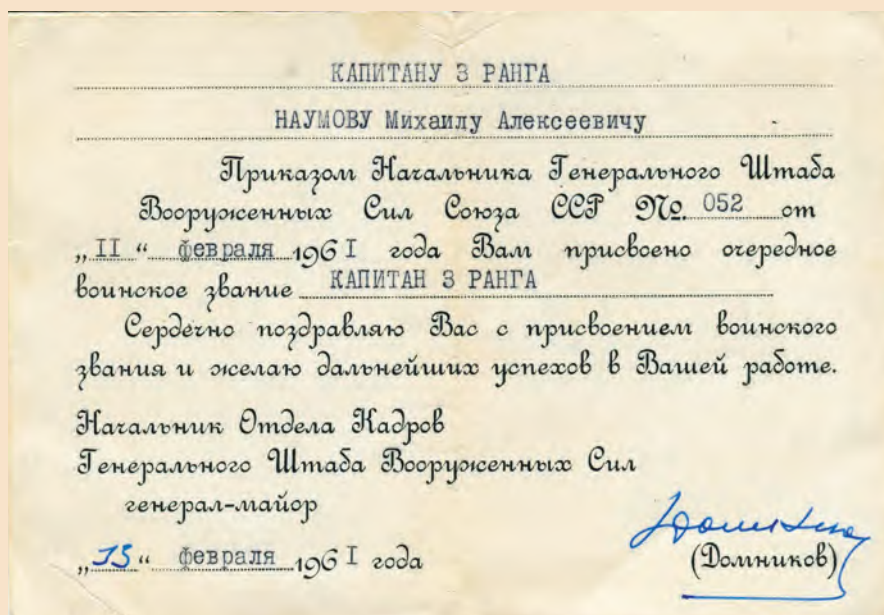 КАПИТАНУ 3 РАНГА
НАУМОВУ Михаилу Алексеевичу
Приказом Начальника Генерального Штаба
Вооруженных Сил Союза ССР №. 052 от
„II“ февраля 196I года Вам присвоено очередное
воинское звание КАПИТАН 3 РАНГА
Сердечно поздравляю Вас с присвоением воинского
звания и желаю дальнейших успехов в Вашей работе.
Начальник Отдела Кадров
Генерального Штаба Вооруженных Сил
генерал-майор
(Домников)
„13“ февраля 196I года